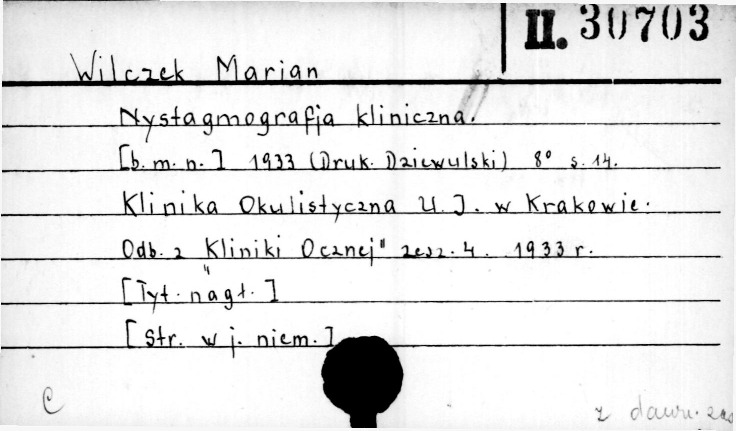 II. 30703
Wilczek Marian
Nystagmografja kliniczna.
[b. m. n.] 1933 (Druk. Dziewulski) 8° s. 14.
Klinika Okulistyczna U. J. w Krakowie.
Odb. z „Kliniki Ocznej" zesz. 4. 1933 r.
[Tyt. nagł.]
[Str. w j. niem.]
C
z dawn. zas